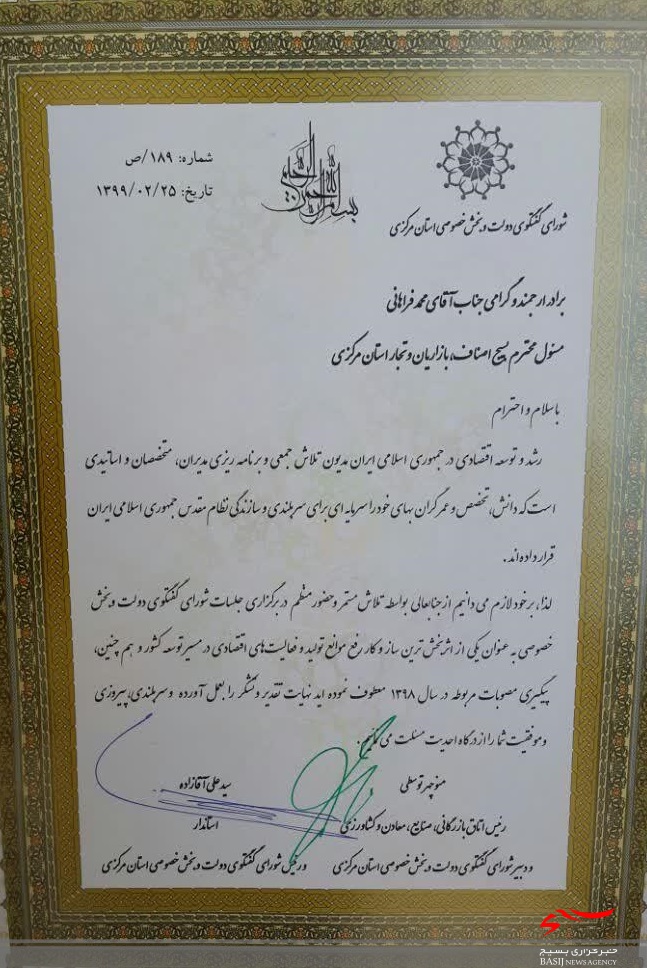 شماره: ۱۸۹/ص
تاریخ: ۱۳۹۹/۰۲/۲۵
بسم الله الرحمن الرحیم
شورای گفتگوی دولت و بخش خصوصی استان مرکزی
برادر ارجمند و گرامی جناب آقای محمد فراهانی
مسئول محترم بسیج اصناف، بازاریان و تجار استان مرکزی
با سلام و احترام
رشد و توسعه اقتصادی در جمهوری اسلامی ایران مدیون تلاش جمعی و برنامه ریزی مدیران، متخصصان و اساتیدی
است که دانش، تخصص و عمر گران بهای خود را سرمایه ای برای سربلندی و سازندگی نظام مقدس جمهوری اسلامی ایران
قرار داده اند.
لذا، بر خود لازم می دانیم از جنابعالی بواسطه تلاش مستمر و حضور منظم در برگزاری جلسات شورای گفتگوی دولت و بخش
خصوصی به عنوان یکی از اثربخش ترین ساز و کار رفع موانع تولید و فعالیت‌های اقتصادی در مسیر توسعه کشور و هم چنین،
پیگیری مصوبات مربوطه در سال ۱۳۹۸ معطوف نموده اید نهایت تقدیر و تشکر را بعمل آورده و سربلندی، پیروزی
و موفقیت شما را از درگاه احدیت مسئلت می نمائیم.
منوچهر توسطی
رئیس اتاق بازرگانی، صنایع، معادن و کشاورزی
و دبیر شورای گفتگوی دولت و بخش خصوصی استان مرکزی
سید علی آقازاده
استاندار
و رئیس شورای گفتگوی دولت و بخش خصوصی استان مرکزی
خبرگزاری بسیج
BASIJ NEWS AGENCY